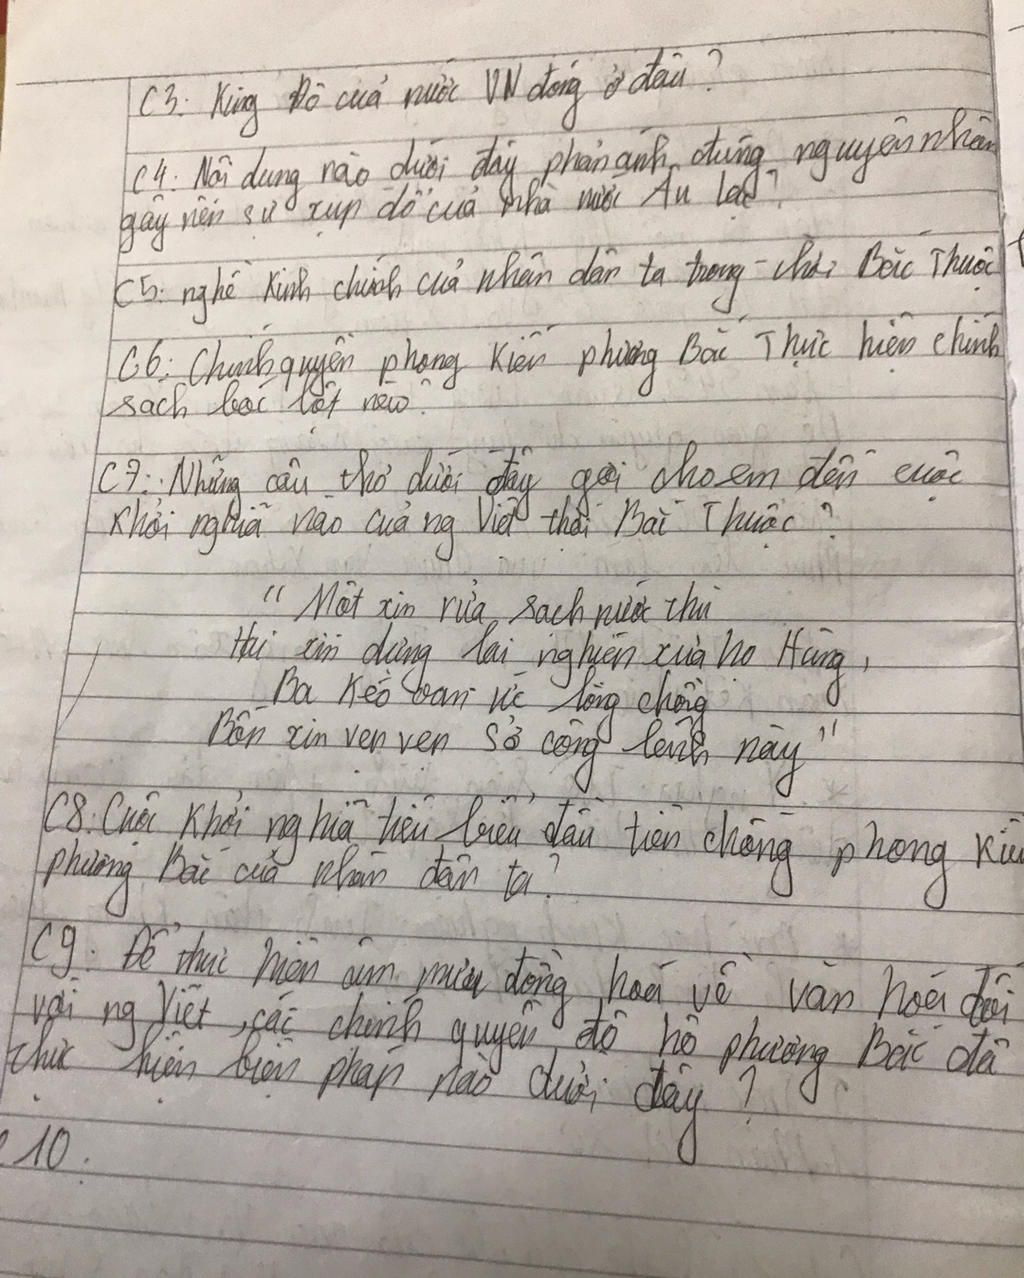 C3: King Đô của nước VN đóng ở đâu?
C4: Nội dung nào dưới đây phản ánh đúng nguyên nhân
gây nên sự sụp đổ của nhà nước Âu Lạc?
C5: nghề Kinh chính của nhân dân ta trong thời Bắc Thuộc
C6: Chính quyền phong Kiến phương Bắc Thực hiện chính
sach bóc lột nào?
C7: Những câu thơ dưới đây gợi cho em đến cuộc
Khởi nghĩa nào của ng Việt thời Bắc Thuộc?
"Một xin rửa sạch nước thù
Hai xin dựng lại nghiệp xưa họ Hùng,
Ba Kẻo oan ức lòng chồng
Bốn xin vẹn vẹn sở công lênh này"
C8: Cuộc Khởi nghĩa tiêu biểu đầu tiên chống phong Kiế
phương Bắc của nhân dân ta?
C9: Để thực hiện âm mưu đồng hoá về văn hoá đối
với ng Việt, các chính quyền đô hộ phương Bắc đã
thực hiện biện pháp nào dưới đây?
10.